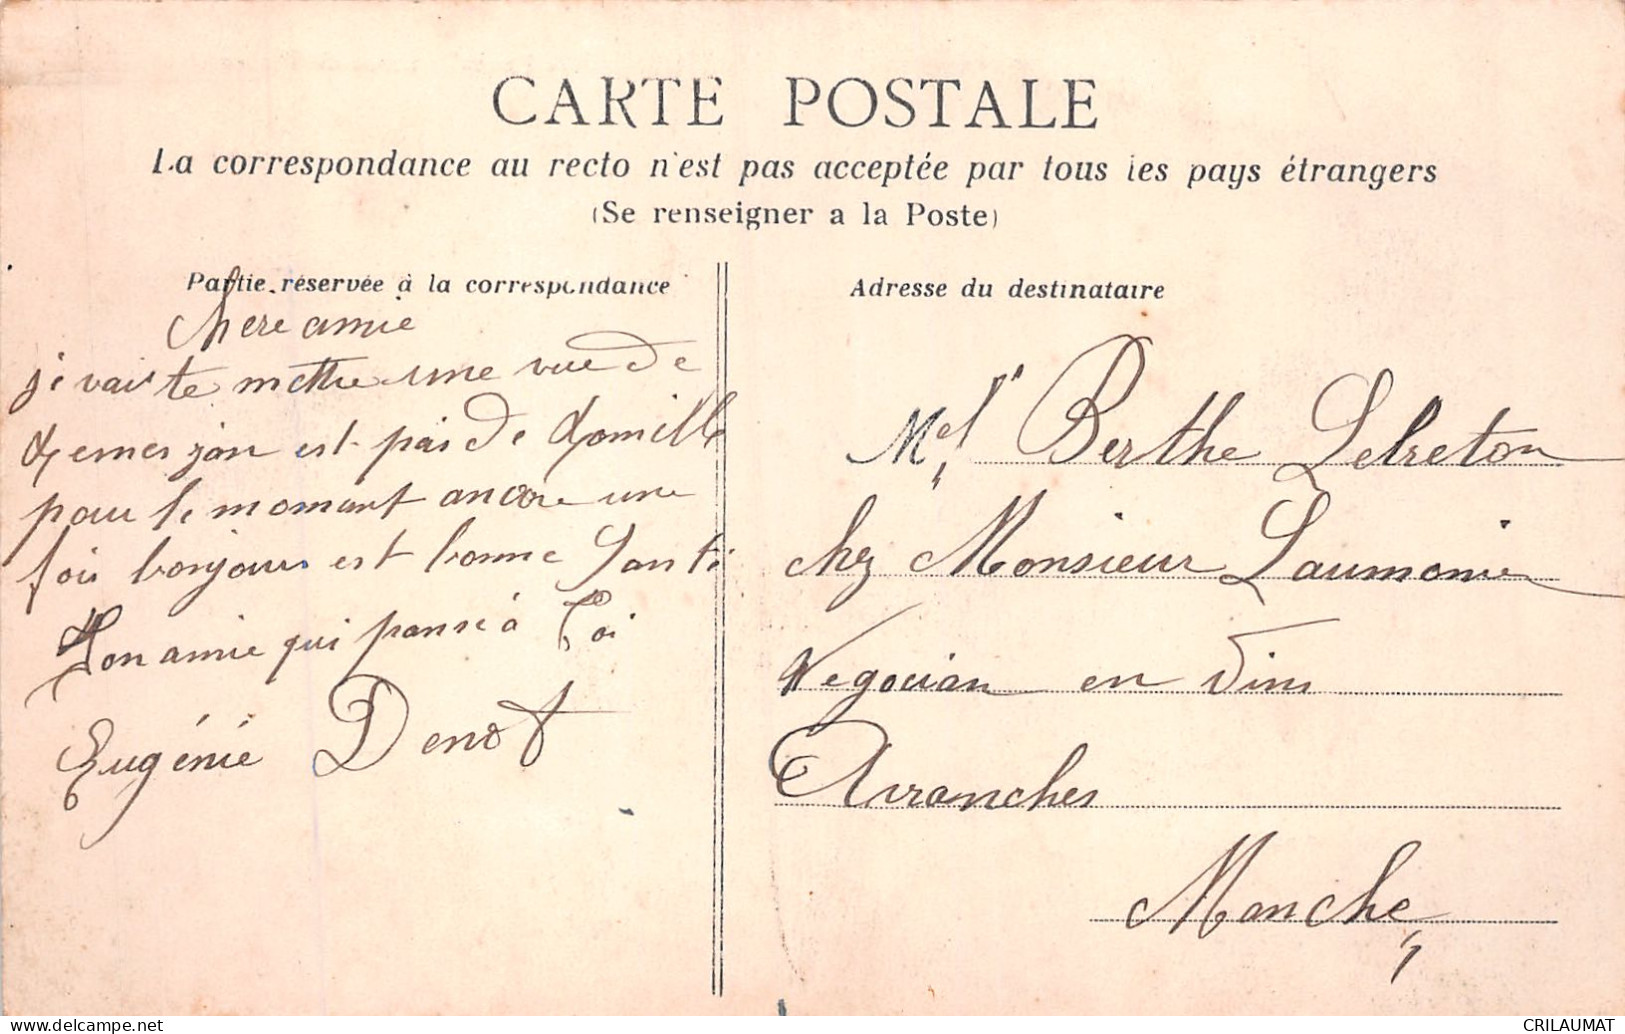 CARTE POSTALE
La correspondance au recto n'est pas acceptée par tous les pays étrangers
(Se renseigner a la Poste)
Partie réservée à la correspondance
chere amie
je vais te mettre une vue de
est pas de
pour le momant ancore une
fois bonjour est bonne Santé
Ton amie qui panse à Toi
Eugénie Denot
Adresse du destinataire
Mel Berthe Lebreton
chez Monsieur Laumonier
Negocian en Vins
Avranches
Manche
CRILAUMAT